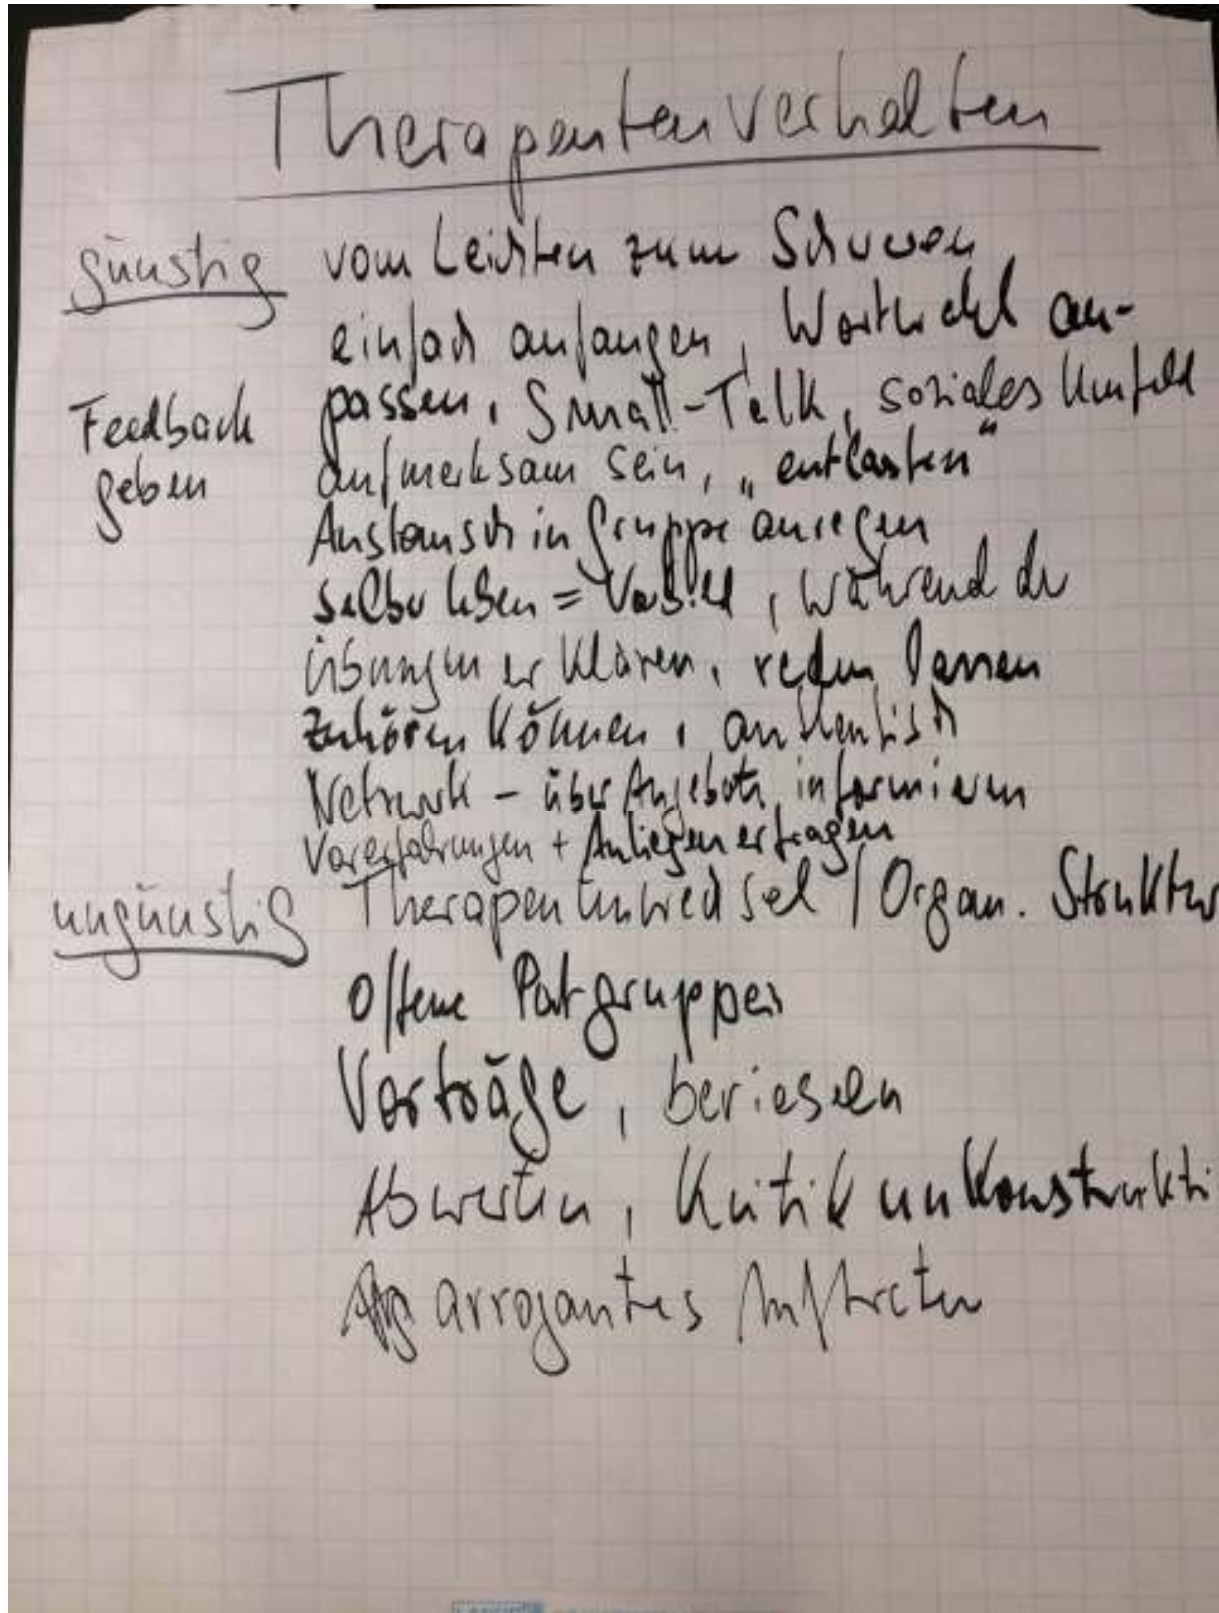 Therapeutenverhalten
günstig vom Leichten zum Schweren
einfach anfangen, Wortwahl an-
Feedback passen, Small-Talk, soziales Umfeld
geben aufmerksam sein, „entlasten“
Austausch in Gruppe anregen
selber leben = Vorbild, während der
Übungen erklären, reden lassen
zuhören können, authentisch
Netzwerk - über Angebote informieren
Vorerfahrungen + Anliegen erfragen
ungünstig Therapeutenwechsel / Organ. Struktur
offene Patgruppen
Vorträge, berieseln
Abwerten, Kritik unkonstrukti
arrogantes Auftreten